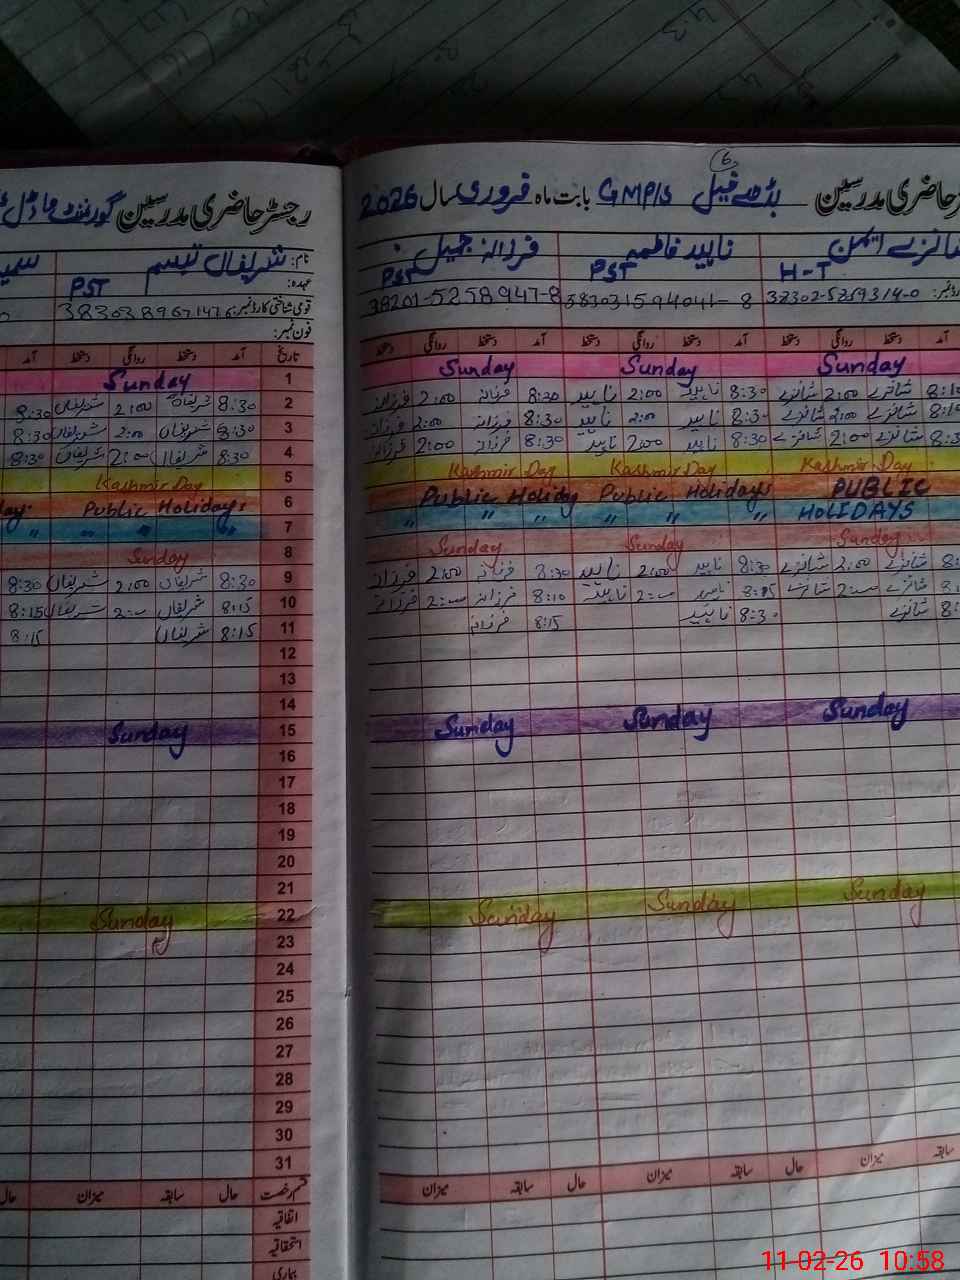 6
رجسٹر حاضری مدرسین گورنمنٹ ماڈل
نام: شریفاں تبسم
عہدہ: PST
قومی شناختی کارڈ نمبر:
فون نمبر:
تاریخ آمد دستخط روانگی دستخط آمد
1 Sunday
2 8:30 شریفاں 2:00 شریفاں 8:30
3 8:30 شریفاں 2:00 شریفاں 8:30
4 8:30 شریفاں 2:00 شریفاں 8:30
5 Kashmir Day
6 Public Holidays
7 " " " "
8 Sunday
9 8:30 شریفاں 2:00 شریفاں 8:30
10 8:15 شریفاں 2:00 شریفاں 8:15
11 8:15 شریفاں 8:15
12
13
14
15 Sunday
16
17
18
19
20
21
22 Sunday
23
24
25
26
27
28
29
30
31
قسم رخصت حال سابقہ میزان حال
اتفاقیہ
استحقاقیہ
بیماری
حاضری مدرسین GMP/S بابت ماہ فروری سال 2026
ناہید فاطمہ فرزانہ جمیل
H-T PST PST
38302-5259314-0 383031594041-8 38201-5258947-8
دستخط روانگی دستخط آمد دستخط روانگی دستخط آمد دستخط روانگی دستخط
Sunday Sunday Sunday
شانزے 2:00 شانزے 8:30 ناہید 2:00 ناہید 8:30 فرزانہ 2:00 فرزانہ
شانزے 2:00 شانزے 8:30 ناہید 2:00 ناہید 8:30 فرزانہ 2:00 فرزانہ
شانزے 2:00 شانزے 8:30 ناہید 2:00 ناہید 8:30 فرزانہ 2:00 فرزانہ
Kashmir Day Kashmir Day Kashmir Day
Public Holiday Public Holidays PUBLIC
" " " " " " HOLIDAYS
Sunday Sunday Sunday
شانزے 2:00 شانزے 8:30 ناہید 2:00 ناہید 8:30 فرزانہ 2:00 فرزانہ
شانزے 2:00 شانزے 8:15 ناہید 2:00 ناہید 8:10 فرزانہ 2:00 فرزانہ
شانزے 8:30 ناہید 8:15 فرزانہ
Sunday Sunday Sunday
Sunday Sunday Sunday
سابقہ میزان حال سابقہ میزان حال سابقہ میزان
11-02-26 10:58